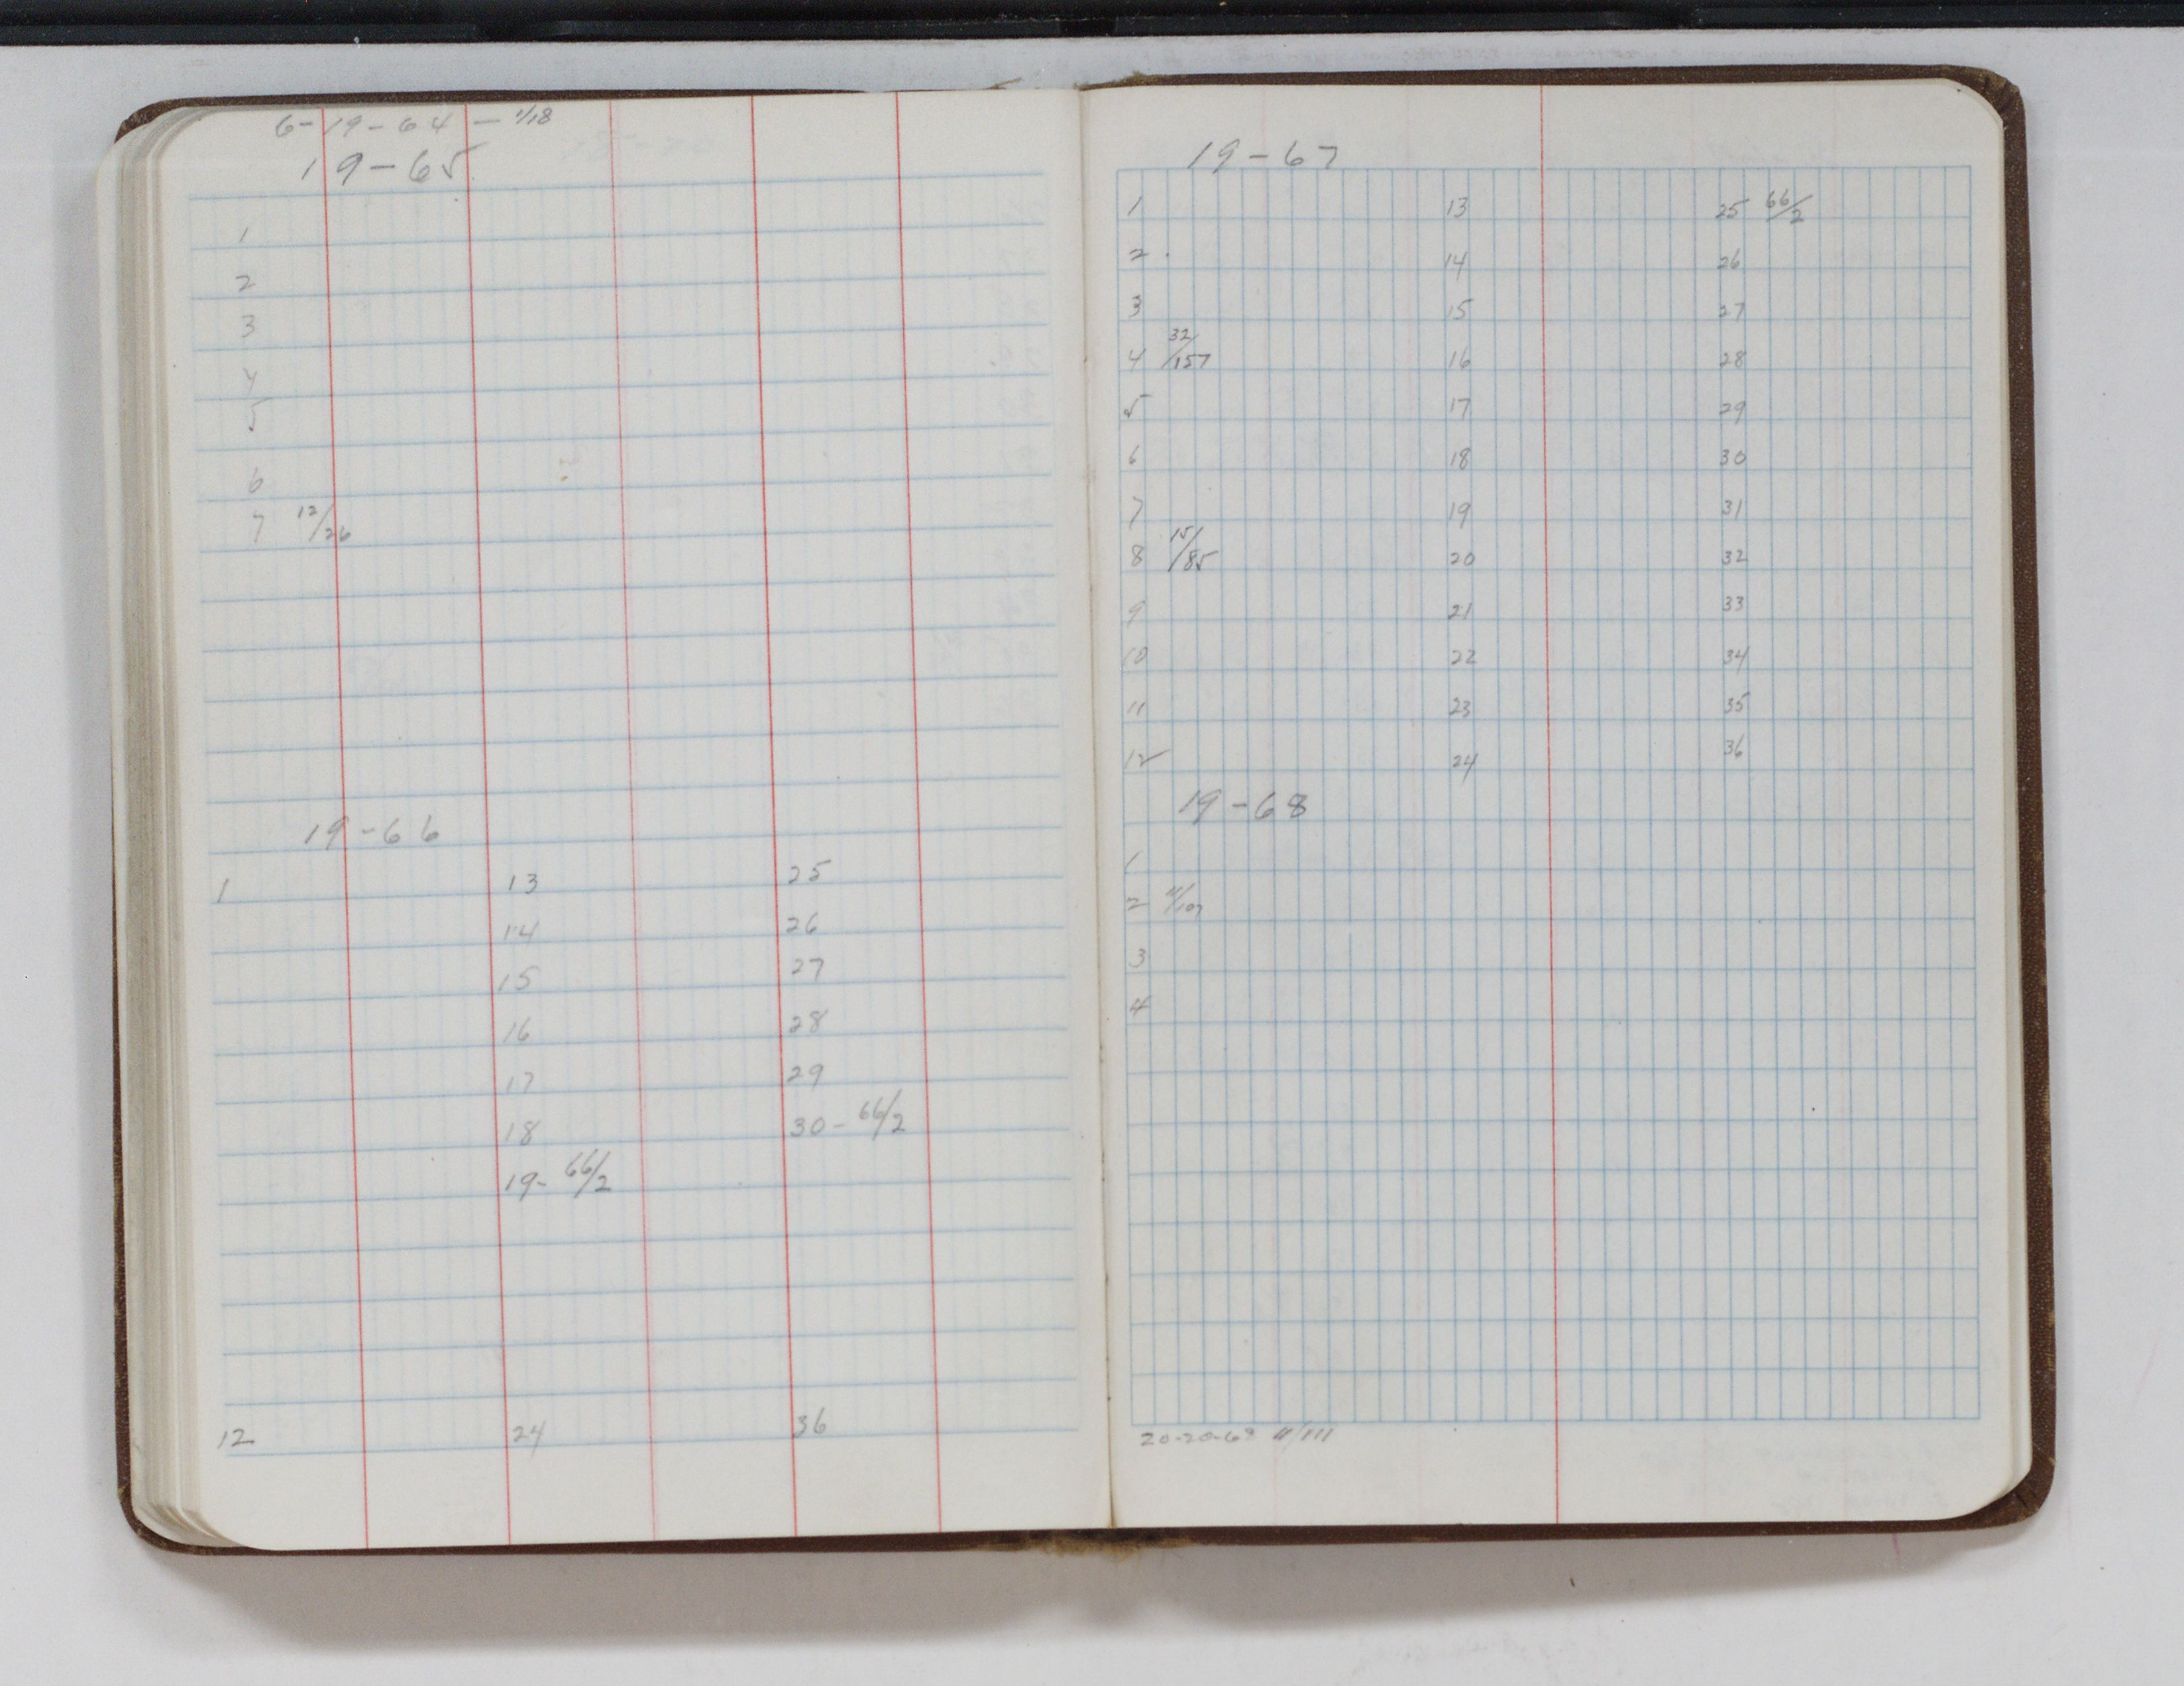 6-19-64 - 11/18
19-65
1
2
3
4
5
6
7 12/26
19-66
1 13 25
14 26
15 27
16 28
17 29
18 30- 66/2
19- 66/2
12 24 36
19-67
1 13 25 66/2
2 14 26
3 15 27
4 32/157 16 28
5 17 29
6 18 30
7 19 31
8 15/85 20 32
9 21 33
10 22 34
11 23 35
12 24 36
19-68
1
2 11/107
3
4
11/111